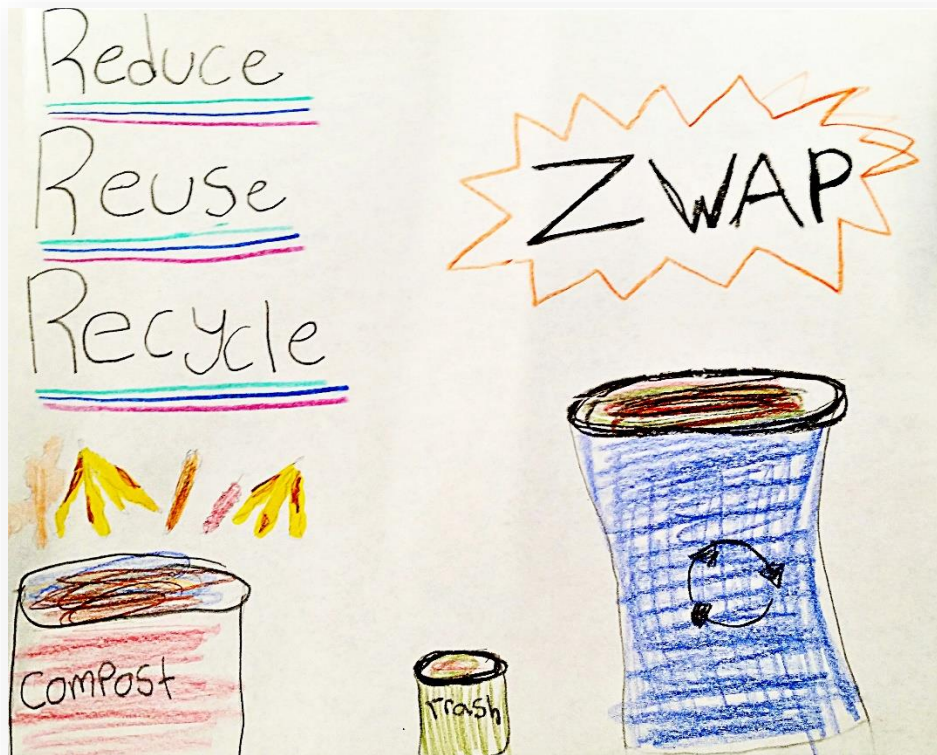 Reduce
Reuse
Recycle
ZWAP
compost
Trash